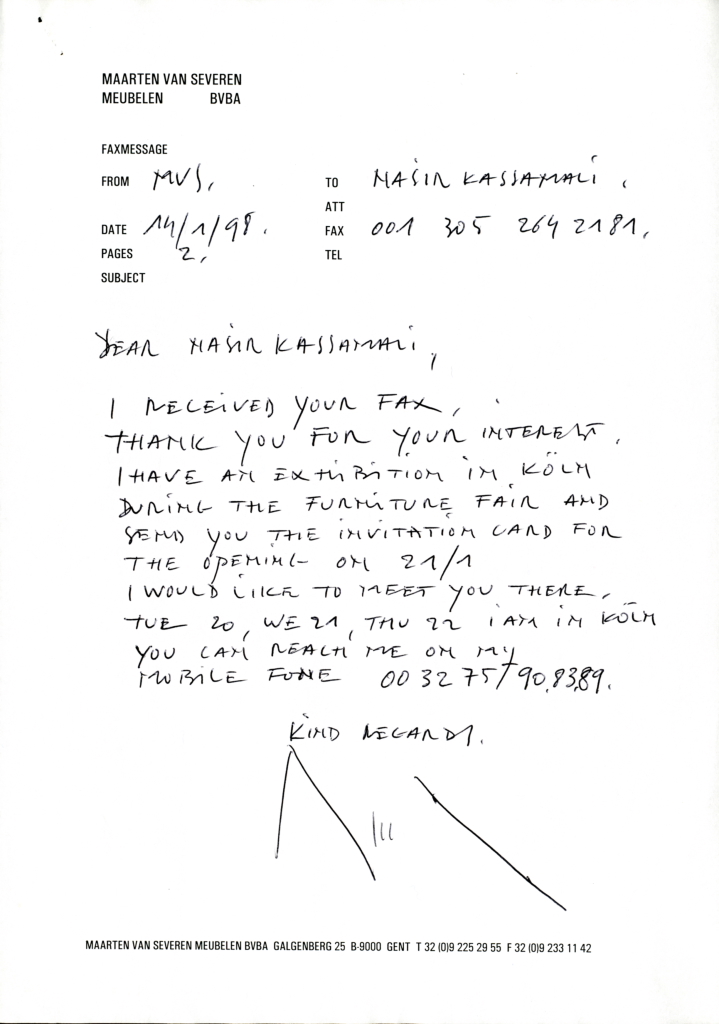 MAARTEN VAN SEVEREN
MEUBELEN BVBA
FAXMESSAGE
FROM MVS. TO NASIR KASSAMALI.
ATT
DATE 14/1/98. FAX 001 305 264 2181.
PAGES 2. TEL
SUBJECT
DEAR NASIR KASSAMALI,
I RECEIVED YOUR FAX,
THANK YOU FOR YOUR INTEREST.
I HAVE AN EXHIBITION IN KÖLN
DURING THE FURNITURE FAIR AND
SEND YOU THE INVITATION CARD FOR
THE OPENING ON 21/1
I WOULD LIKE TO MEET YOU THERE,
TUE 20, WE 21, THU 22 I AM IN KÖLN
YOU CAN REACH ME ON MY
MOBILE FONE 00 32 75/90.83.89.
KIND REGARDS.
MAARTEN VAN SEVEREN MEUBELEN BVBA GALGENBERG 25 B-9000 GENT T 32 (0)9 225 29 55 F 32 (0)9 233 11 42